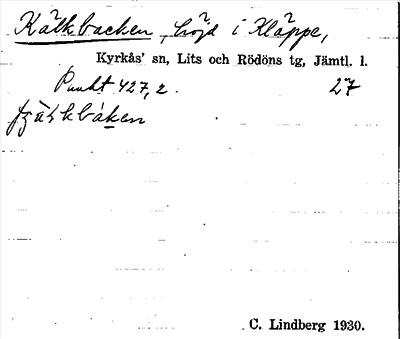 Kälkbacken, höjd i Kläppe,
Kyrkås' sn, Lits och Rödöns tg, Jämtl. l.
Punkt 427,2. 27
C. Lindberg 1930.